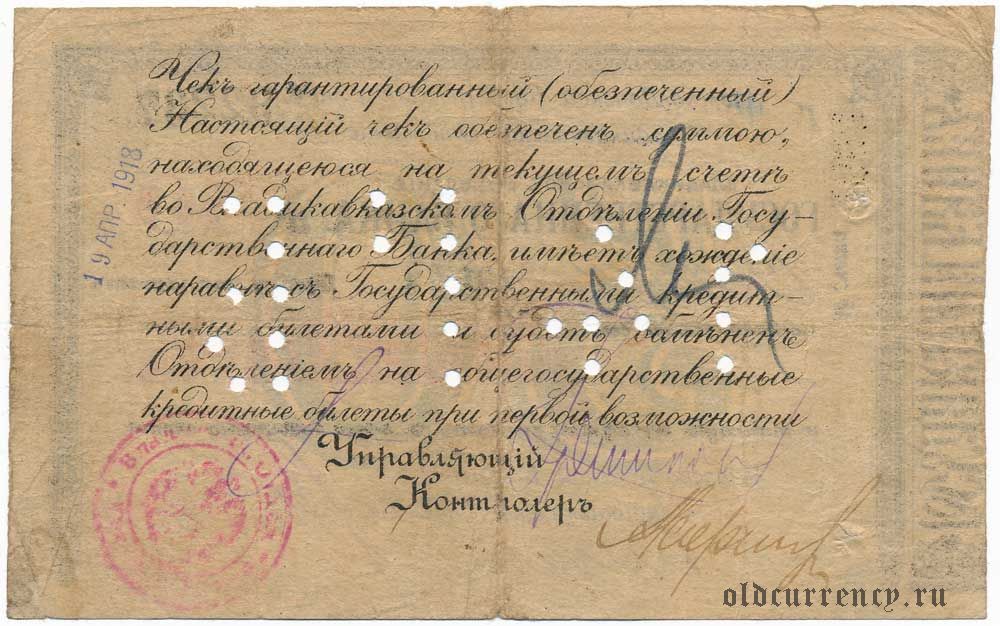 Чекъ гарантированный (обезпеченный)
Настоящій чекъ обезпеченъ суммою,
находящеюся на текущемъ счетѣ
во Владикавказскомъ Отдѣленіи Госу-
дарственнаго Банка, имѣетъ хожденіе
наравнѣ съ Государственными кредит-
ными билетами и будетъ обмѣненъ
Отдѣленіемъ на общегосударственные
кредитные билеты при первой возможности
Управляющій
Контролеръ
19 АПР. 1918
oldcurrency.ru